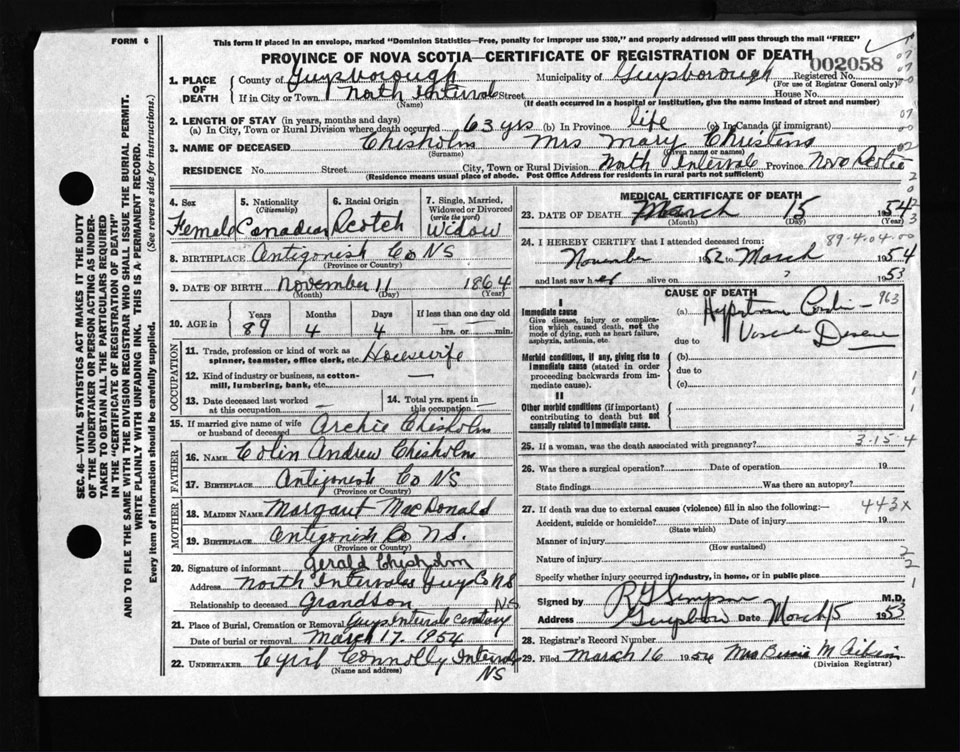 FORM 6
This form if placed in an envelope, marked "Dominion Statistics—Free, penalty for improper use $300," and properly addressed will pass through the mail "FREE"
PROVINCE OF NOVA SCOTIA—CERTIFICATE OF REGISTRATION OF DEATH
002058
1. PLACE OF DEATH County of Guysborough Municipality of Guysborough Registered No.
(For use of Registrar General only)
If in City or Town North Intervale Street House No.
(Name) (If death occurred in a hospital or institution, give the name instead of street and number)
2. LENGTH OF STAY (in years, months and days)
(a) In City, Town or Rural Division where death occurred 63 yrs (b) In Province life (c) In Canada (if immigrant)
3. NAME OF DECEASED Chisholm Mrs Mary Christena
(Surname) (Given name or names)
RESIDENCE No. Street City, Town or Rural Division North Intervale Province Nova Scotia
(Residence means usual place of abode. Post Office Address for residents in rural parts not sufficient)
4. Sex Female
5. Nationality (Citizenship) Canadian
6. Racial Origin Scotch
7. Single, Married, Widowed or Divorced (write the word) Widow
8. BIRTHPLACE Antigonish Co NS
(Province or Country)
9. DATE OF BIRTH November 11 1864
(Month) (Day) (Year)
10. AGE in Years Months Days If less than one day
89 4 4 hrs. or min.
OCCUPATION
11. Trade, profession or kind of work as spinner, teamster, office clerk, etc. Housewife
12. Kind of industry or business, as cotton-mill, lumbering, bank, etc. —
13. Date deceased last worked at this occupation —
14. Total yrs. spent in this occupation —
15. If married give name of wife or husband of deceased Archie Chisholm
FATHER
16. NAME Colin Andrew Chisholm
17. BIRTHPLACE Antigonish Co NS
(Province or Country)
MOTHER
18. MAIDEN NAME Margaret MacDonald
19. BIRTHPLACE Antigonish Co NS.
(Province or Country)
20. Signature of informant Gerald Chisholm
Address North Intervale Guys Co NS
Relationship to deceased Grandson NS
21. Place of Burial, Cremation or Removal Guys Intervale Cemetary
Date of burial or removal March 17. 1954
22. UNDERTAKER Cyril Connolly Intervale NS
(Name and address)
MEDICAL CERTIFICATE OF DEATH
23. DATE OF DEATH March 15 1954
(Month) (Day) (Year)
89-4-04-00
24. I HEREBY CERTIFY that I attended deceased from:
November 1952 to March 1954
and last saw her alive on ? 1953
CAUSE OF DEATH
I
Immediate cause
Give disease, injury or complication which caused death, not the mode of dying, such as heart failure, asphyxia, asthenia, etc.
(a) Hypertensive Cardio- 963
Vascular Disease
due to
Morbid conditions, if any, giving rise to immediate cause (stated in order proceeding backwards from immediate cause).
(b)
due to
(c)
II
Other morbid conditions (if important) contributing to death but not causally related to immediate cause.
25. If a woman, was the death associated with pregnancy? 3.15.4
26. Was there a surgical operation? Date of operation 19
State findings Was there an autopsy?
27. If death was due to external causes (violence) fill in also the following:— 443X
Accident, suicide or homicide? Date of injury 19
(State which)
Manner of injury
(How sustained)
Nature of injury
Specify whether injury occurred in industry, in home, or in public place
Signed by R G Simpson M.D.
Address Guysboro Date March 15 1953
28. Registrar's Record Number
29. Filed March 16 1954 Mrs Bessie M Aikins
(Division Registrar)
SEC. 46—VITAL STATISTICS ACT MAKES IT THE DUTY OF THE UNDERTAKER OR PERSON ACTING AS UNDERTAKER TO OBTAIN ALL THE PARTICULARS REQUIRED IN THE "CERTIFICATE OF REGISTRATION OF DEATH" AND TO FILE THE SAME WITH THE DIVISION REGISTRAR WHO SHALL ISSUE THE BURIAL PERMIT.
WRITE PLAINLY WITH UNFADING INK. THIS IS A PERMANENT RECORD.
Every item of information should be carefully supplied. (See reverse side for instructions.)